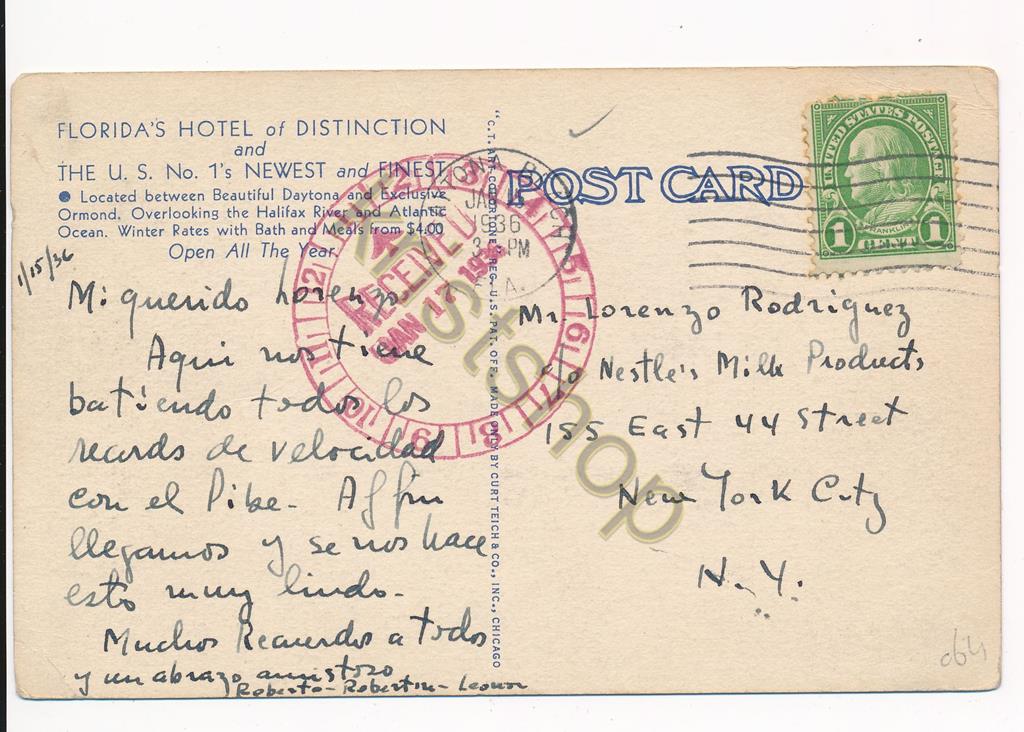 FLORIDA'S HOTEL of DISTINCTION
and
THE U. S. No. 1's NEWEST and FINEST
● Located between Beautiful Daytona and Exclusive
Ormond. Overlooking the Halifax River and Atlantic
Ocean. Winter Rates with Bath and Meals from $4.00
Open All The Year
1/15/36
Mi querido Lorenzo
Aqui nos tiene
batiendo todos los
records de velocidad
con el Pibe. Al fin
llegamos y se nos hace
esto muy lindo.
Muchos Recuerdos a todos
y un abrazo amistoso
Roberto - Robertin - Leonor
POST CARD
JAN
1936
PM
RECEIVED
JAN 17 193
REG. U.S. PAT. OFF. MADE ONLY BY CURT TEICH & CO., INC., CHICAGO
UNITED STATES POSTAGE
FRANKLIN
1 CENT 1
Mr. Lorenzo Rodriguez
c/o Nestle's Milk Products
155 East 44 Street
New York City
N.Y.
Kristshop